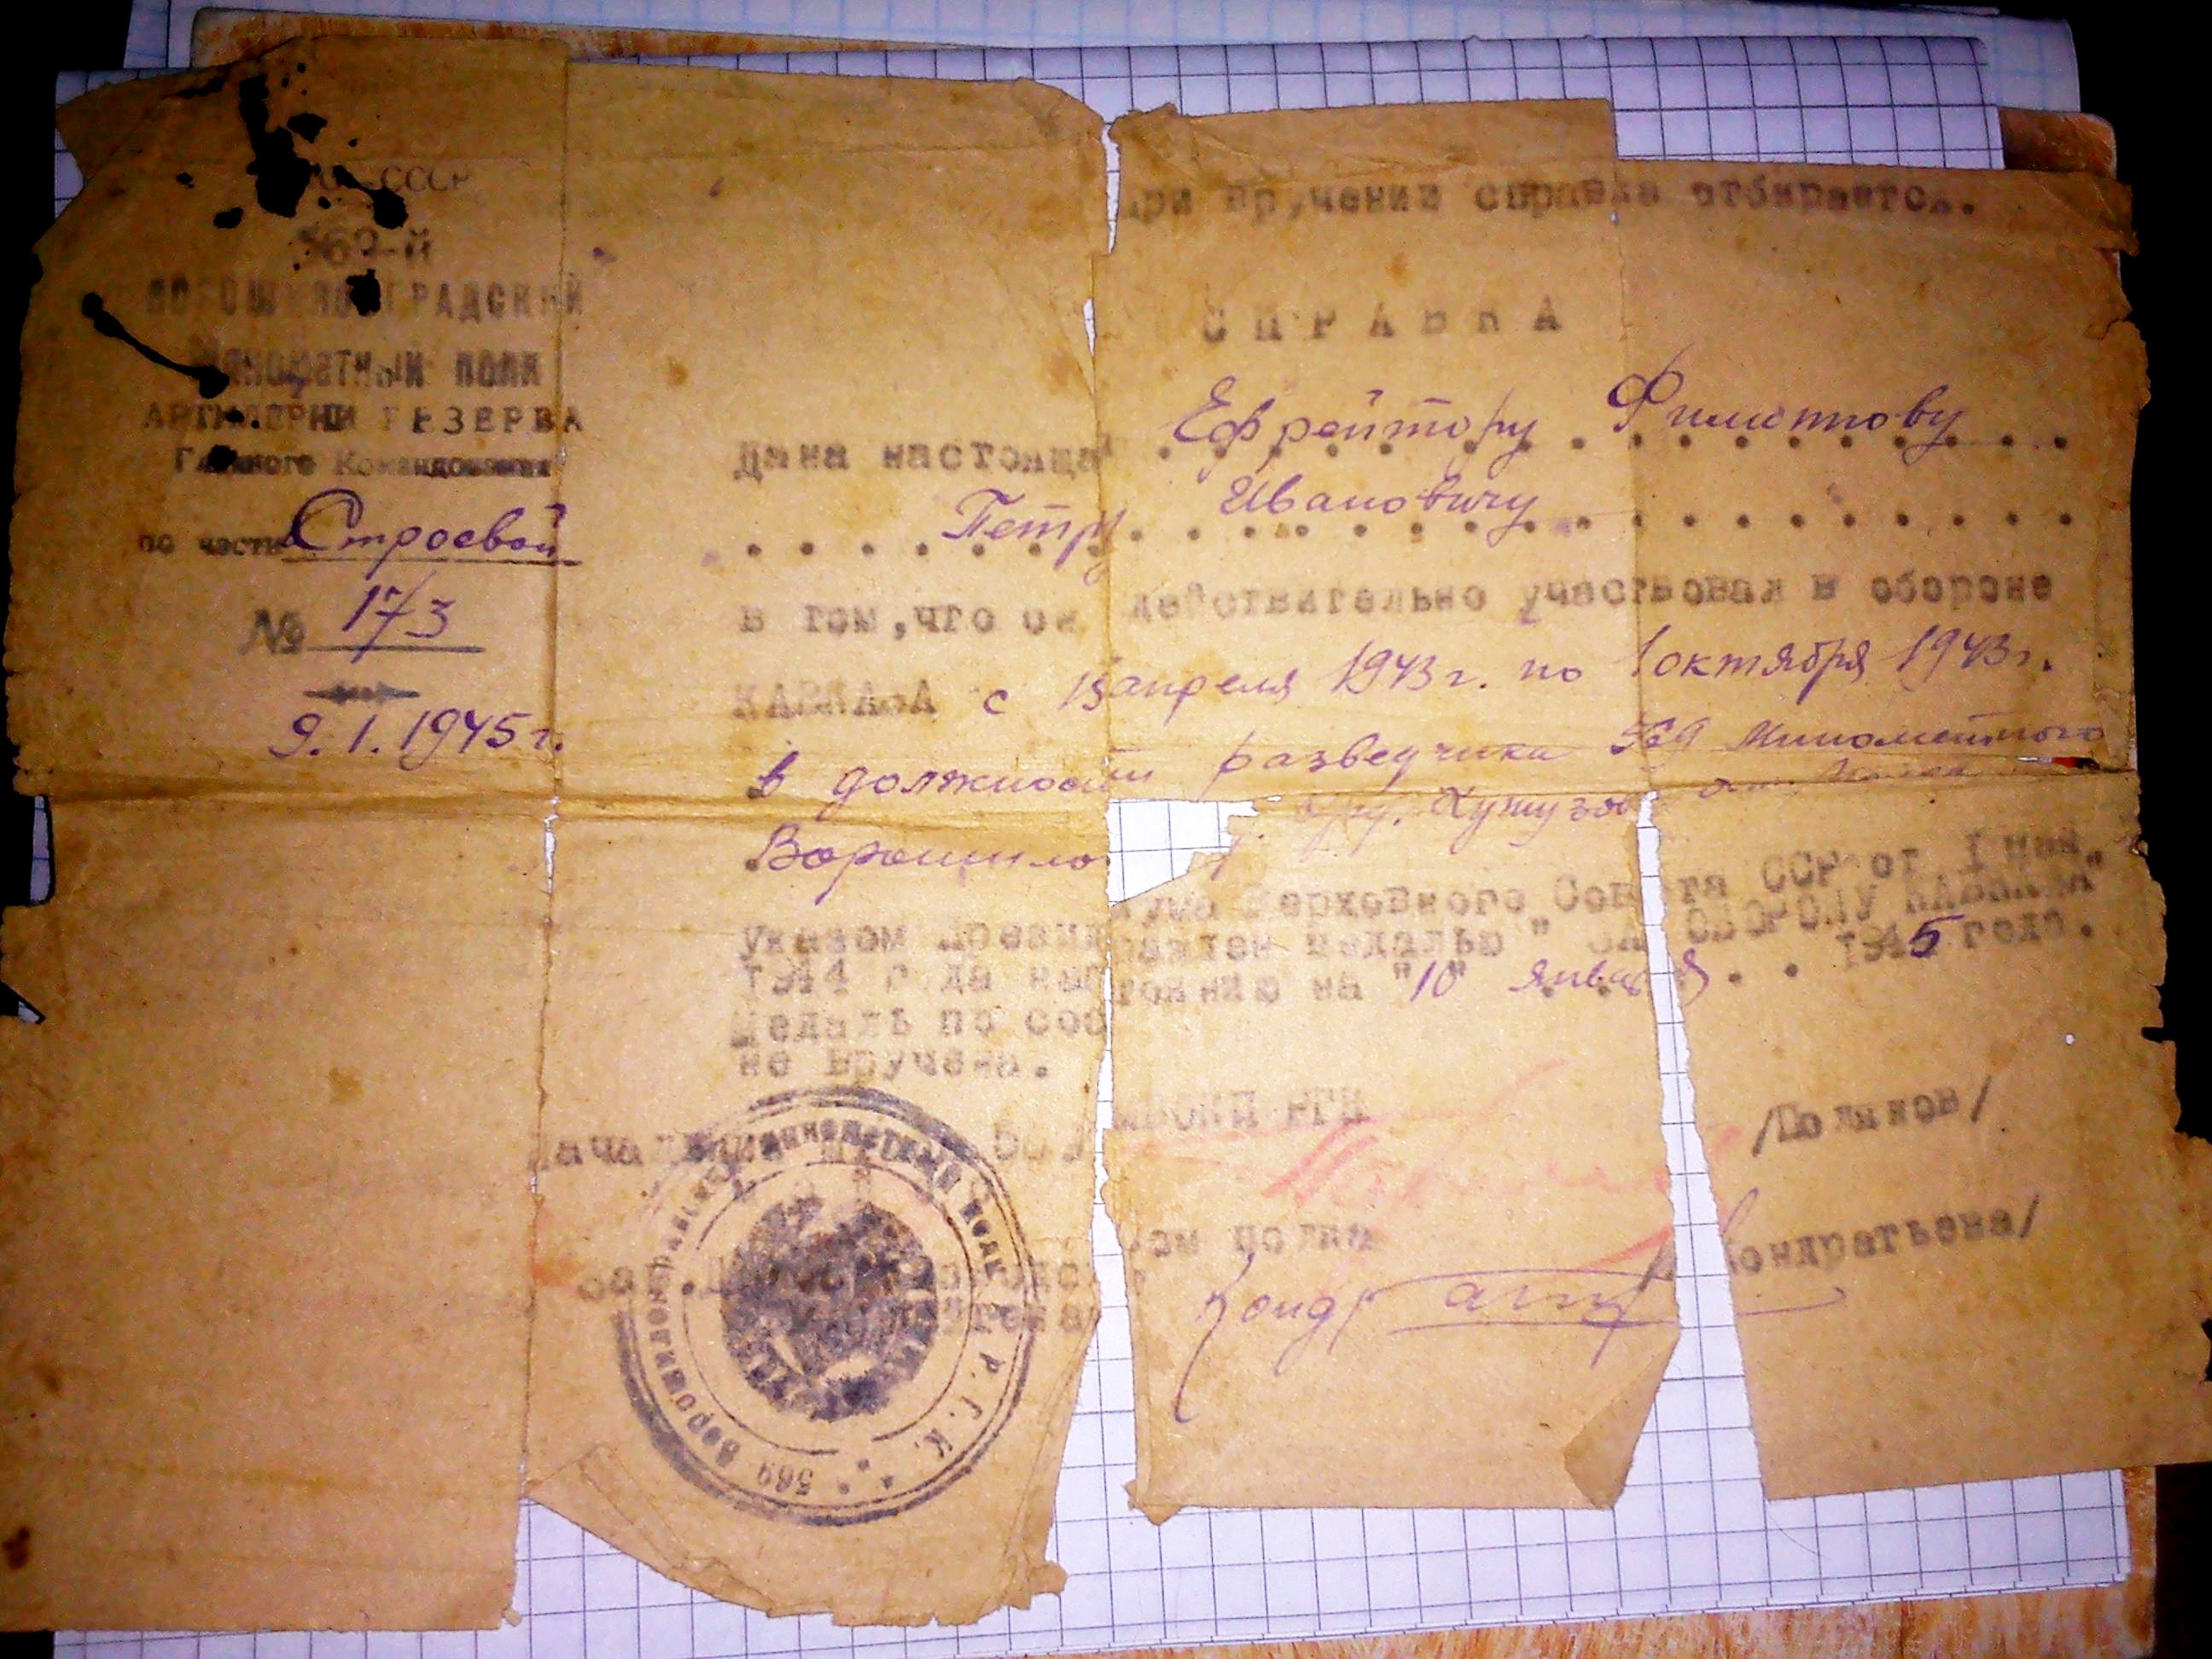 СССР
569-й
ВОРОШИЛОВГРАДСКИЙ
Минометный полк
АРТИЛЛЕРИИ РЕЗЕРВА
Главного Командования
по части Строевой
№ 173
9.1.1945г.
При вручении справка отбирается.
СПРАВКА
Дана настоящая Ефрейтору Филиппову
Петру Ивановичу
в том, что он действительно участвовал в обороне
КАВКАЗА с 15 апреля 1943г. по 1 октября 1943г.
в должности разведчика 569 Минометного
Ворошило орд. Кутузова полка
Указом Президиума Верховного Совета СССР от 1 мая
1944 года награжден медалью "ЗА ОБОРОНУ КАВКАЗА"
Медаль по состоянию на "10" января 1945 года.
не вручена.
Нача 569 РГК /Поляков/
Зав. Делопроизводст ом полка
Кондрат /Кондратьева/
569 Ворошиловградский минометный полк Р.Г.К.